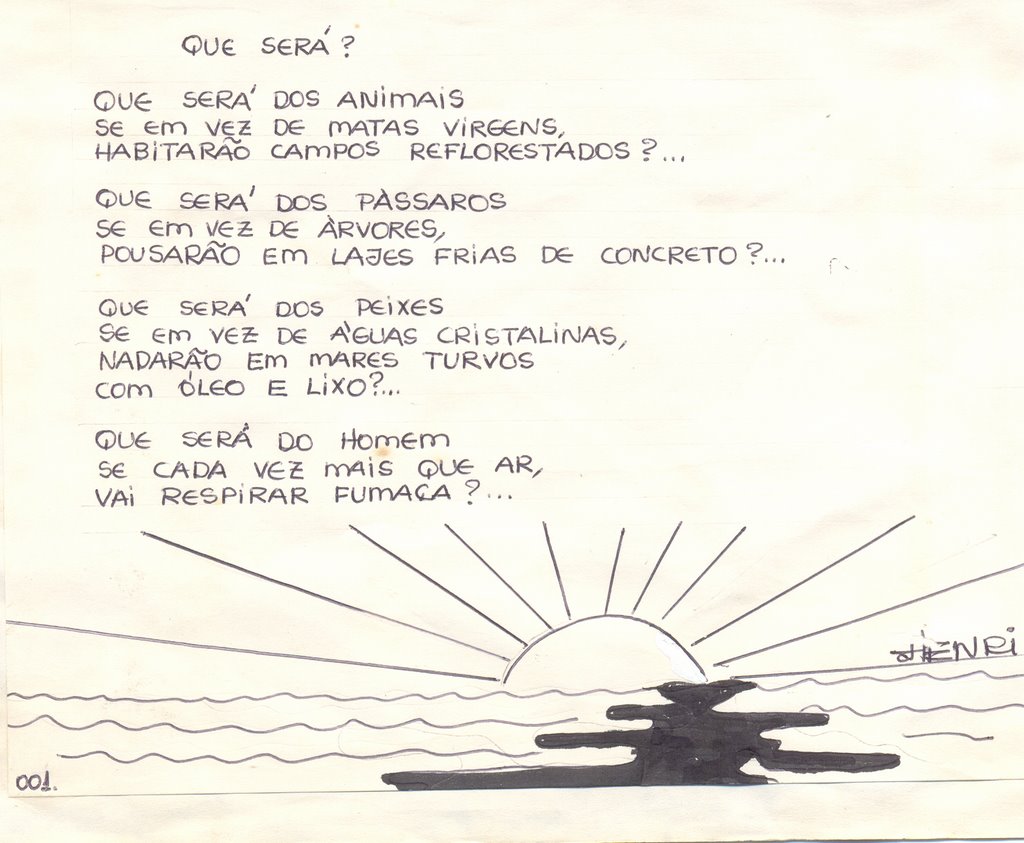 QUE SERÁ?
QUE SERÁ DOS ANIMAIS
SE EM VEZ DE MATAS VIRGENS,
HABITARÃO CAMPOS REFLORESTADOS?...
QUE SERÁ DOS PÀSSAROS
SE EM VEZ DE ÀRVORES,
POUSARÃO EM LAJES FRIAS DE CONCRETO?...
QUE SERÁ DOS PEIXES
SE EM VEZ DE ÀGUAS CRISTALINAS,
NADARÃO EM MARES TURVOS
COM ÓLEO E LIXO?...
QUE SERÁ DO HOMEM
SE CADA VEZ MAIS QUE AR,
VAI RESPIRAR FUMAÇA?...
HENRI
001.